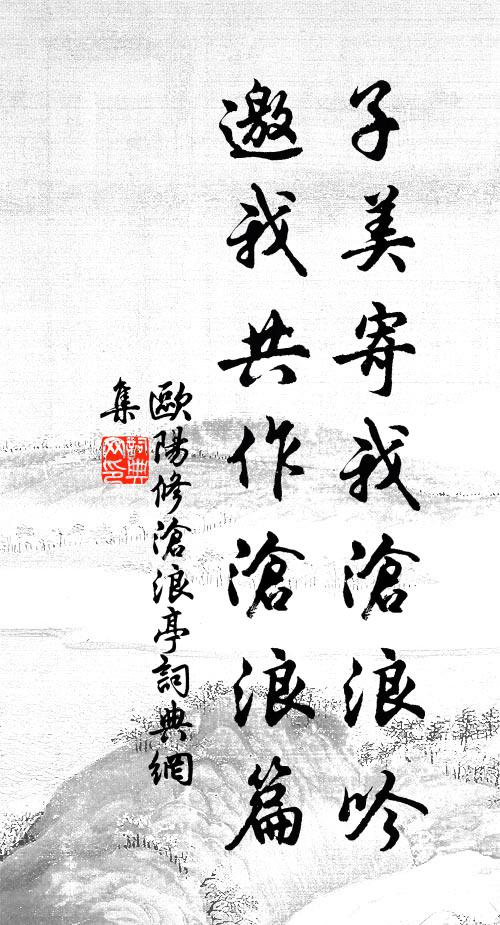 子美寄我滄浪吟
邀我共作滄浪篇
歐陽修滄浪亭詞典網
集
詞典网印